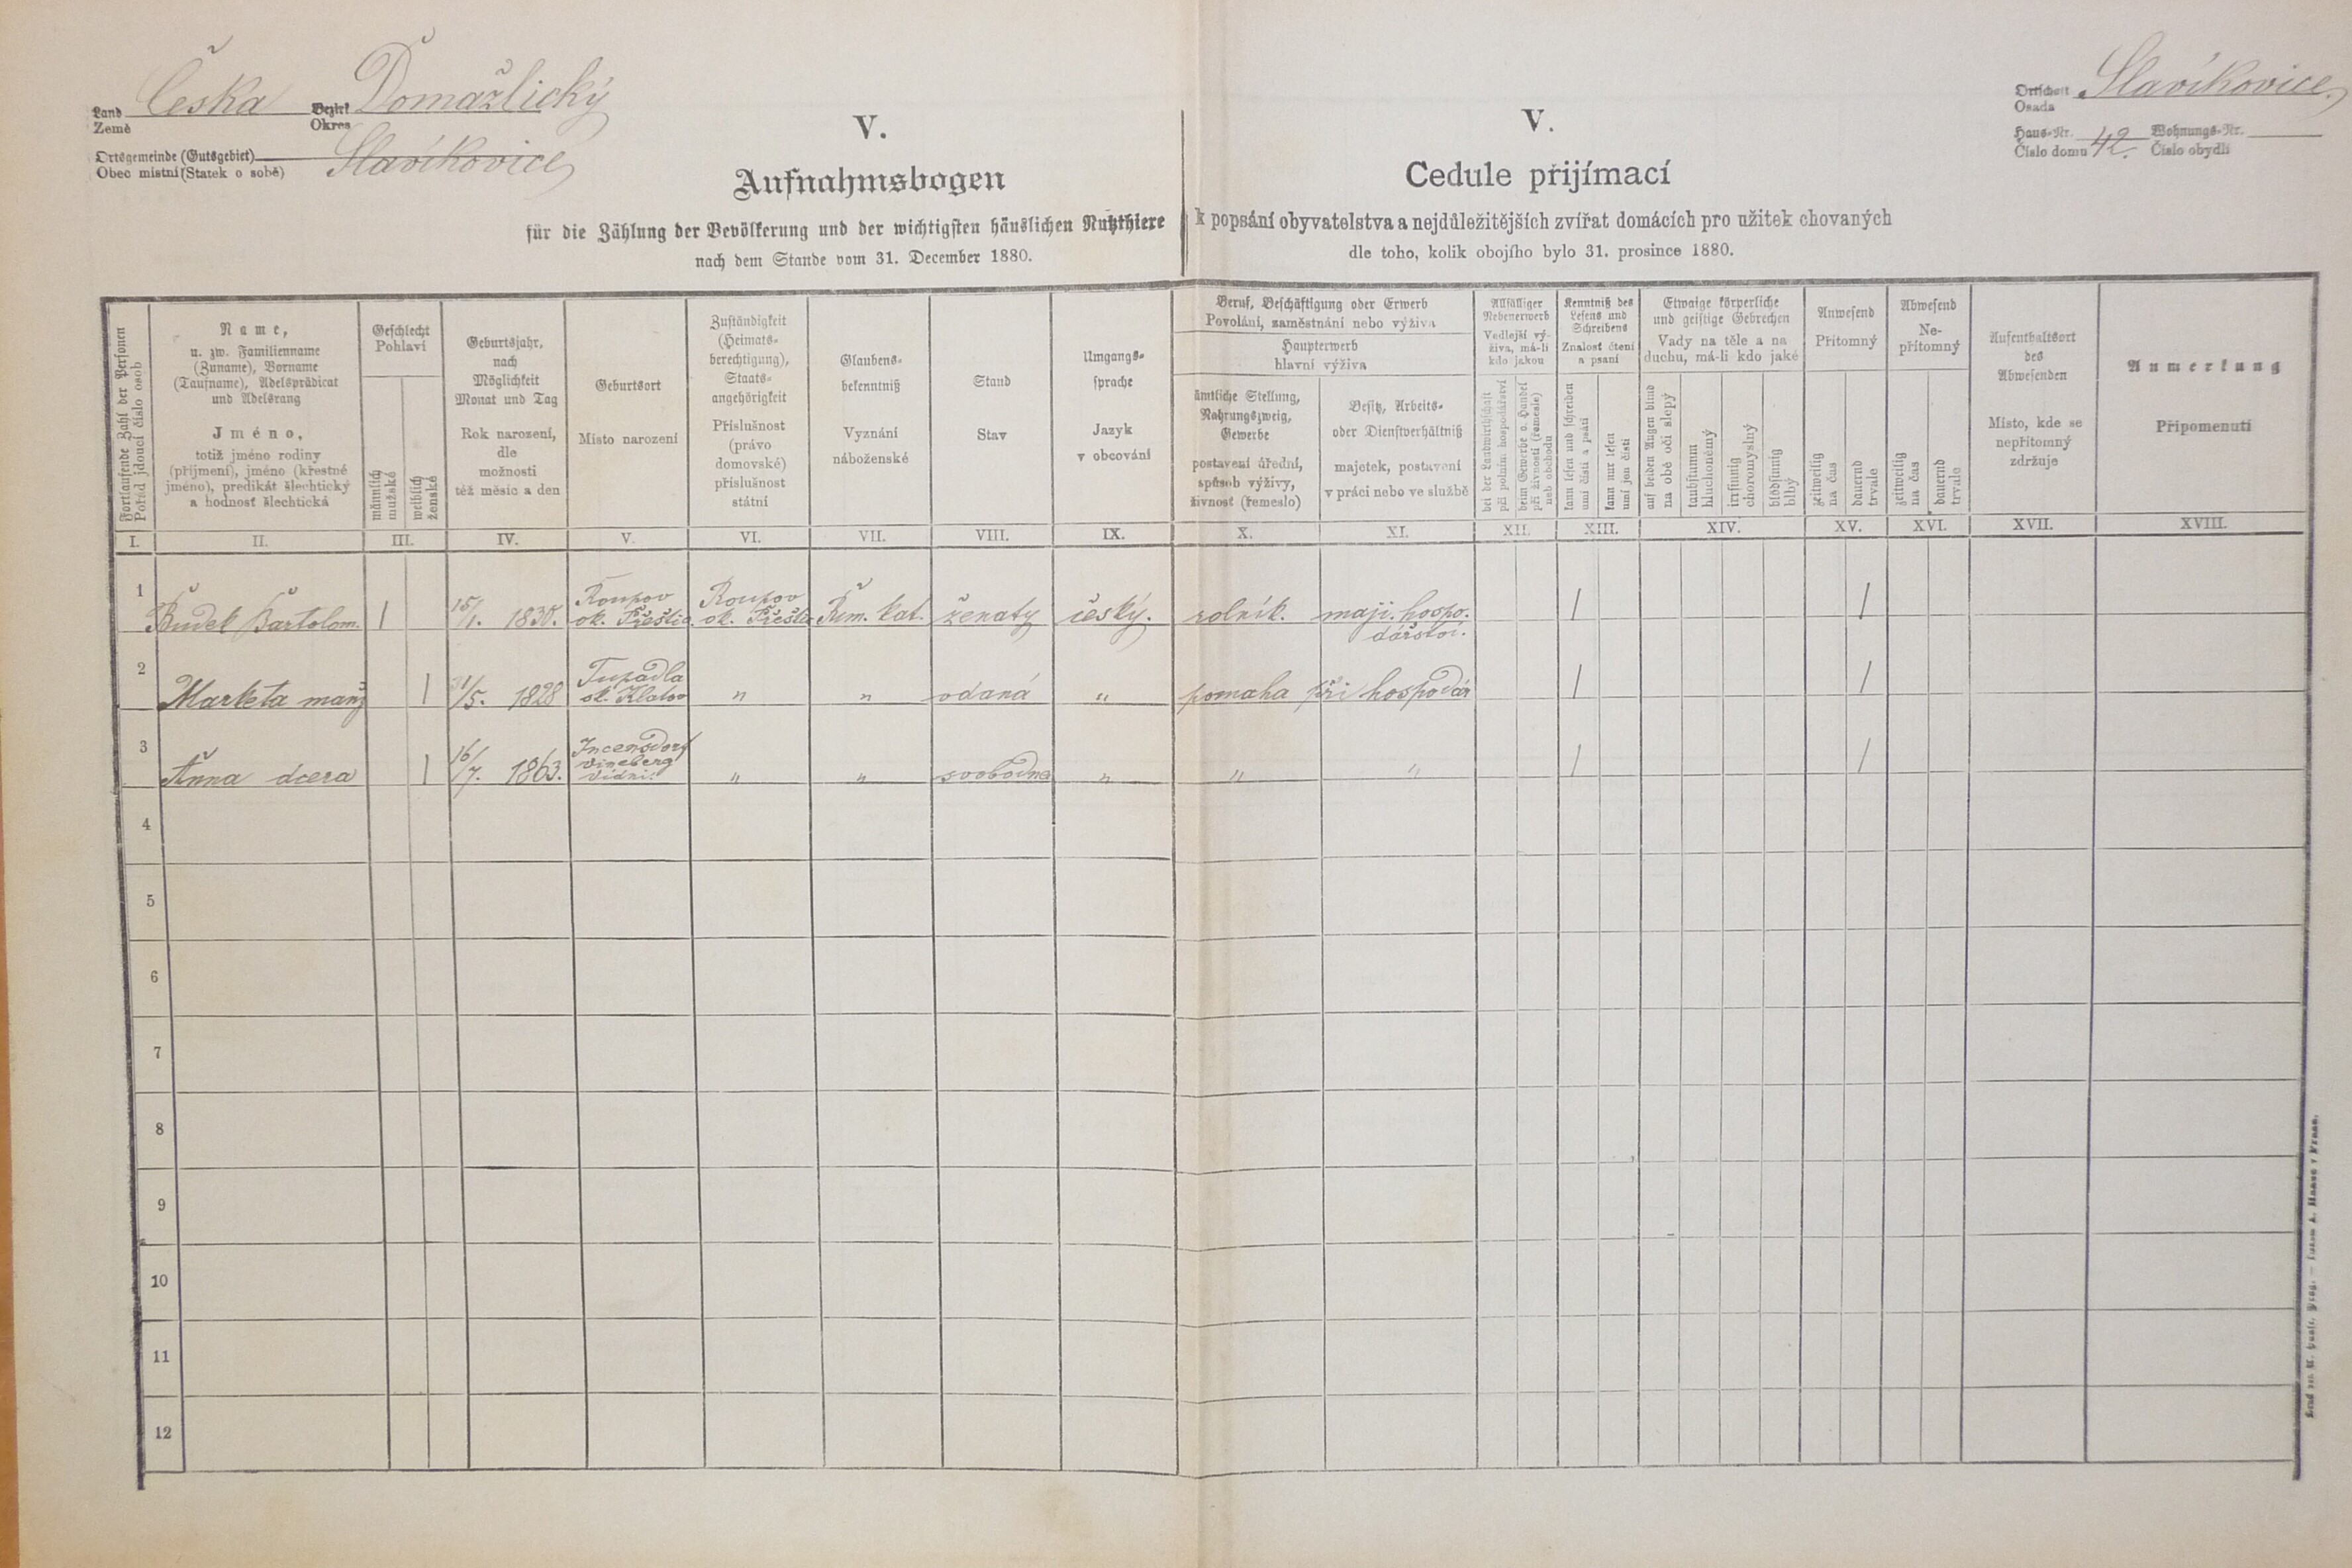 Land Česka Bezirk Domažlický
Země Okres
Ortsgemeinde (Gutsgebiet)
Obec místní (Statek o sobě) Slavíkovice
V.
Aufnahmsbogen
für die Zählung der Bevölkerung und der wichtigsten häuslichen Nutzthiere
nach dem Stande vom 31. December 1880.
V.
Cedule přijímací
k popsání obyvatelstva a nejdůležitějších zvířat domácích pro užitek chovaných
dle toho, kolik obojího bylo 31. prosince 1880.
Ortschaft Slavíkovice
Osada
Haus-Nr. 42. Wohnungs-Nr.
Číslo domu Číslo obydlí
Fortlaufende Zahl der Personen
Pořád jdoucí číslo osob
Name,
u. zw. Familienname
(Zuname), Vorname
(Taufname), Adelsprädicat
und Adelsrang
Jméno,
totiž jméno rodiny
(příjmení), jméno (křestné
jméno), predikát šlechtický
a hodnost šlechtická
Geschlecht
Pohlaví
männlich
mužské
weiblich
ženské
Geburtsjahr,
nach
Möglichkeit
Monat und Tag
Rok narození,
dle
možnosti
též měsíc a den
Geburtsort
Místo narození
Zuständigkeit
(Heimats-
berechtigung),
Staats-
angehörigkeit
Příslušnost
(právo
domovské)
příslušnost
státní
Glaubens-
bekenntniß
Vyznání
náboženské
Stand
Stav
Umgangs-
sprache
Jazyk
v obcování
Beruf, Beschäftigung oder Erwerb
Povolání, zaměstnání nebo výživa
Haupterwerb
hlavní výživa
ämtliche Stellung,
Nahrungszweig,
Gewerbe
postavení úřední,
způsob výživy,
živnost (řemeslo)
Besitz, Arbeits-
oder Dienstverhältniß
majetek, postavení
v práci nebo ve službě
Allfälliger
Nebenerwerb
Vedlejší vý-
živa, má-li
kdo jakou
bei der Landwirthschaft
při polním hospodářství
beim Gewerbe o. Handel
při živnosti (řemesle)
neb obchodu
Kenntniß des
Lesens und
Schreibens
Znalost čtení
a psaní
kann lesen und schreiben
umí čísti a psáti
kann nur lesen
umí jen čísti
Etwaige körperliche
und geistige Gebrechen
Vady na těle a na
duchu, má-li kdo jaké
auf beiden Augen blind
na obě oči slepý
taubstumm
hluchoněmý
irrsinnig
choromyslný
blödsinnig
blbý
Anwesend
Přítomný
zeitweilig
na čas
dauernd
trvale
Abwesend
Ne-
přítomný
zeitweilig
na čas
dauernd
trvale
Aufenthaltsort
des
Abwesenden
Místo, kde se
nepřítomný
zdržuje
Anmerkung
Připomenutí
I. II. III. IV. V. VI. VII. VIII. IX. X. XI. XII. XIII. XIV. XV. XVI. XVII. XVIII.
1 Budek Bartolom. 1 15/1. 1830. Roupov ok. Přeštic Roupov ok. Přeštic Řím. kat. ženatý český. rolník. maji. hospo- 1 1
dářství.
2 Marketa manž 1 31/5. 1828 Tupadla ok. Klatov " " vdaná " pomaha při hospodář 1 1
3 Anna dcera 1 16/7. 1863. " " svobodna " " " 1 1
4
5
6
7
8
9
10
11
12